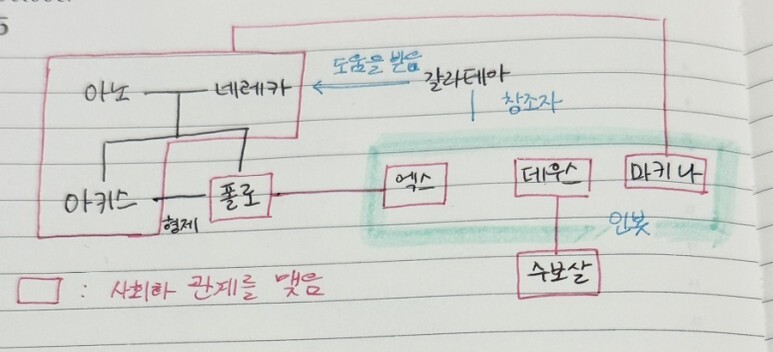 5
도움을 받음
아노 네레카 갈라테아
창조자
엑스 데우스 마키나
아키스 폴로
형제 인봇
수보살
: 사회화 관계를 맺음